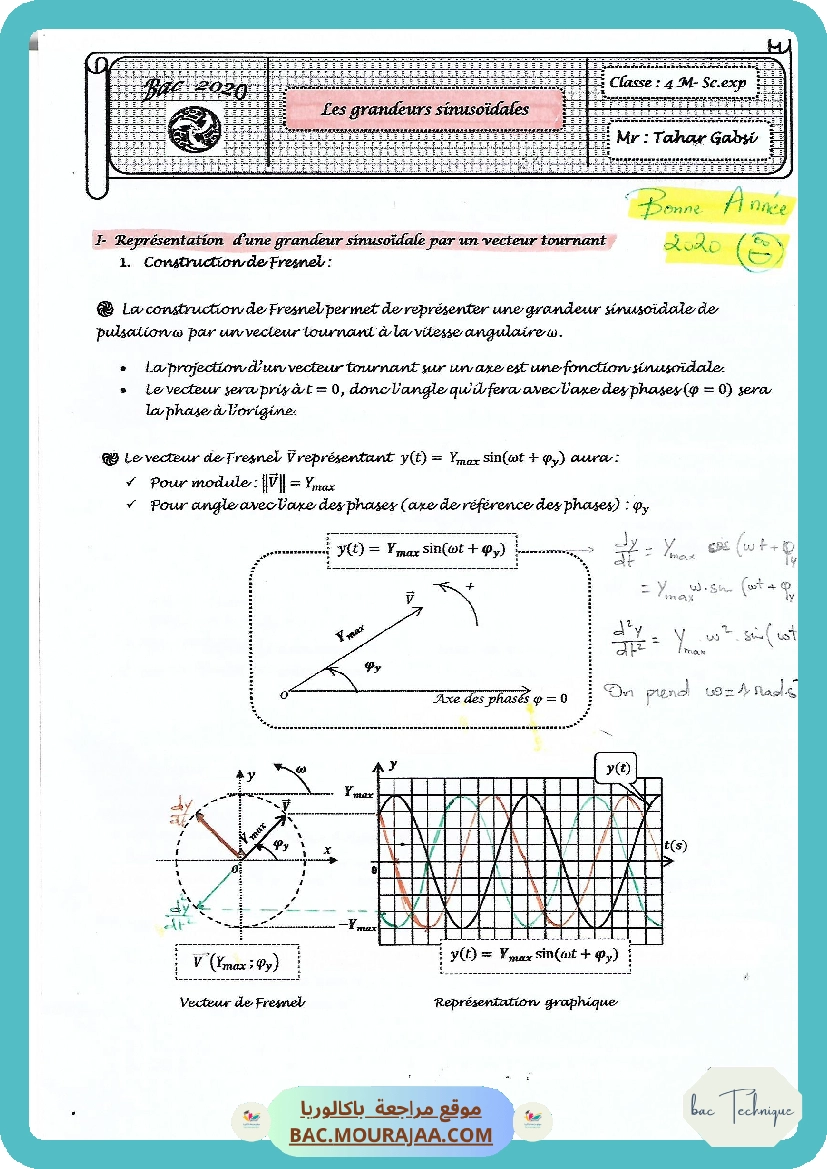 M
Bac 2020
Les grandeurs sinusoïdales
Classe : 4 M- Sc.exp
Mr : Tahar Gabsi
Bonne Année
2020
I- Représentation d'une grandeur sinusoïdale par un vecteur tournant
1. Construction de Fresnel :
La construction de Fresnel permet de représenter une grandeur sinusoïdale de
pulsation ω par un vecteur tournant à la vitesse angulaire ω.
• La projection d'un vecteur tournant sur un axe est une fonction sinusoïdale.
• Le vecteur sera pris à t = 0, donc l'angle qu'il fera avec l'axe des phases (φ = 0) sera
la phase à l'origine.
Le vecteur de Fresnel V⃗ représentant y(t) = Yₘₐₓ sin(ωt + φᵧ) aura :
✓ Pour module : ‖V⃗‖ = Yₘₐₓ
✓ Pour angle avec l'axe des phases (axe de référence des phases) : φᵧ
y(t) = Yₘₐₓ sin(ωt + φᵧ)
dy/dt = Yₘₐₓ cos (ωt + φᵧ
= Yₘₐₓ ω. sin (ωt + φᵧ
d²y/dt² = Yₘₐₓ ω². sin(ωt
On prend ω = 1 rad.s
V⃗
+
Yₘₐₓ
φᵧ
O
Axe des phases φ = 0
ω
y
dy/dt
V⃗
Yₘₐₓ
φᵧ
x
O
d²y/dt²
Yₘₐₓ
-Yₘₐₓ
y
y(t)
t(s)
0
V⃗ (Yₘₐₓ ; φᵧ)
y(t) = Yₘₐₓ sin(ωt + φᵧ)
Vecteur de Fresnel
Représentation graphique
موقع مراجعة باكالوريا
BAC.MOURAJAA.COM
bac Technique